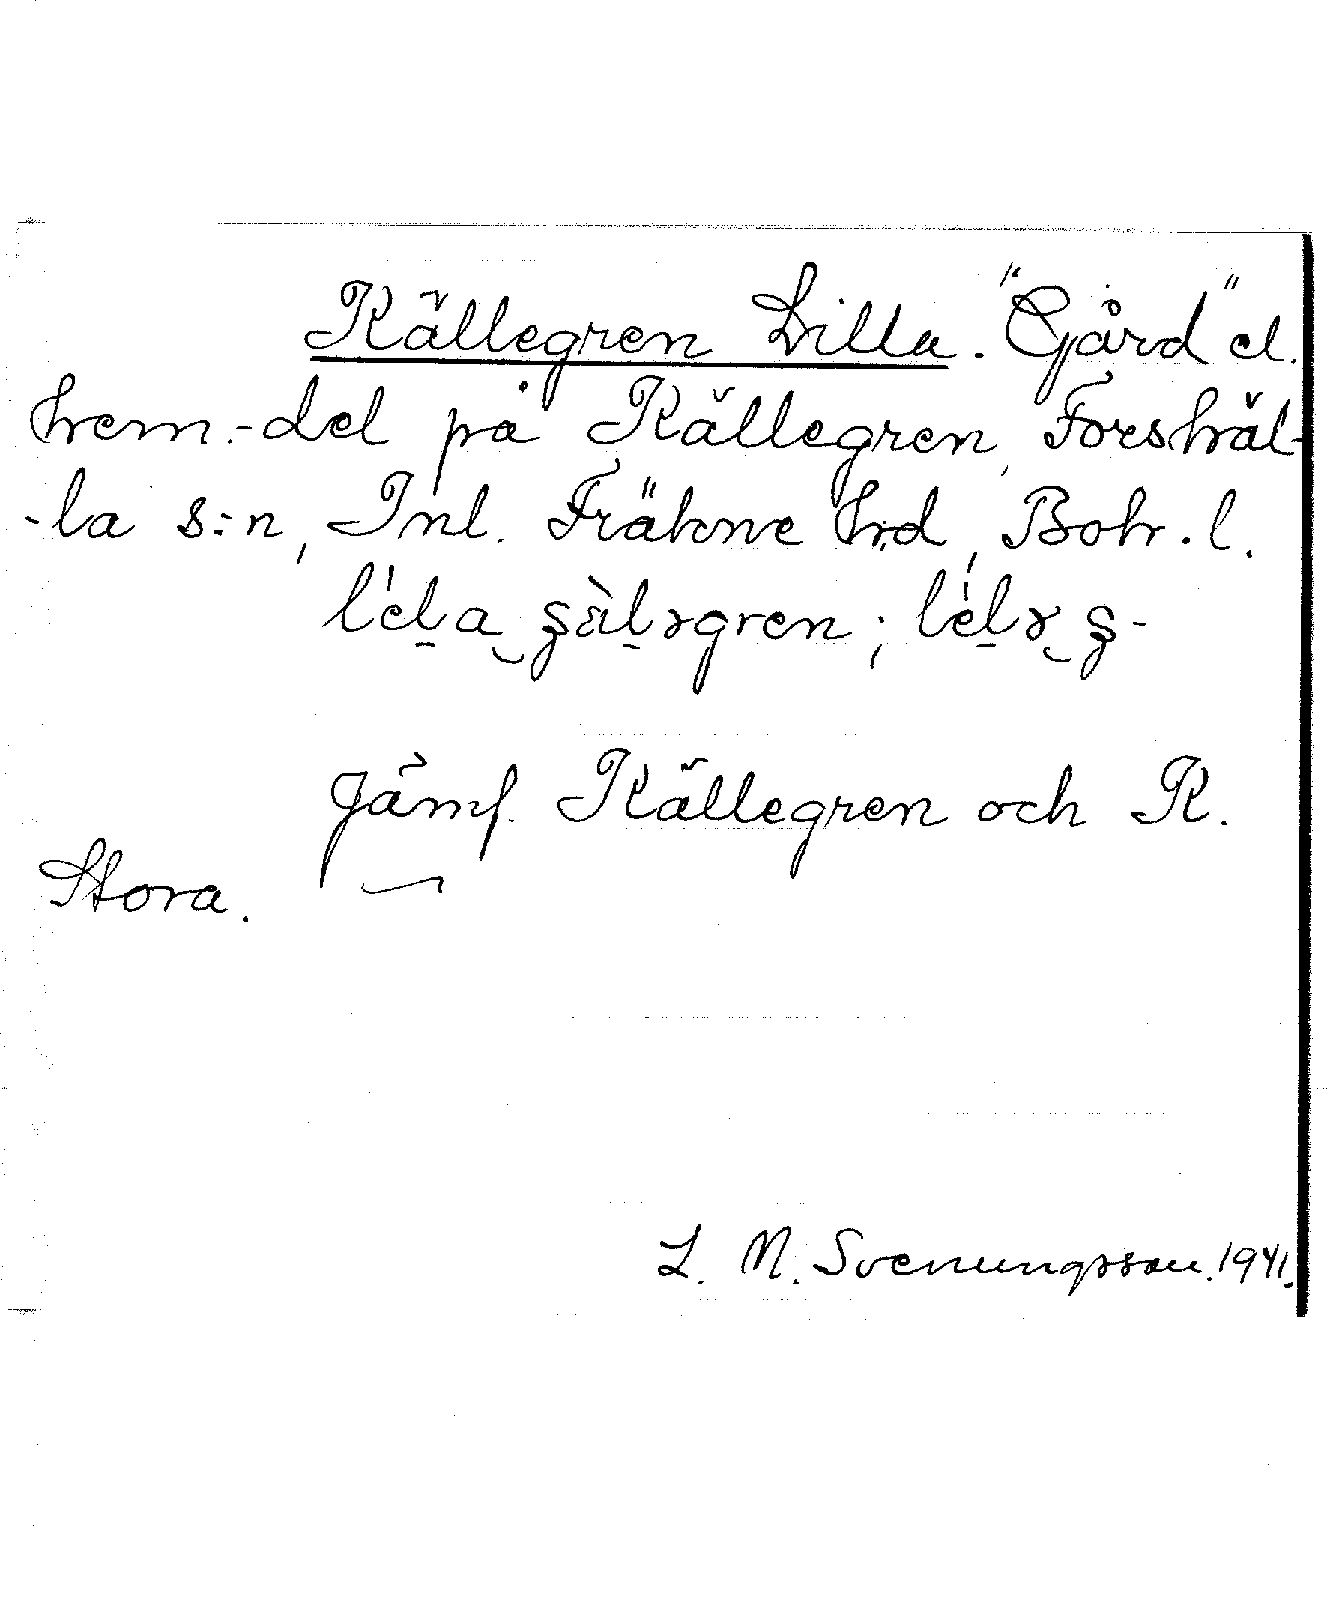 Källegren Lilla. "Gård" el.
hem.-del på Källegren, Forshäl-
-la s:n, Inl. Fräkne hd, Boh. l.
Jämf. Källegren och K.
Stora.
L. N. Svenungsson. 1941.